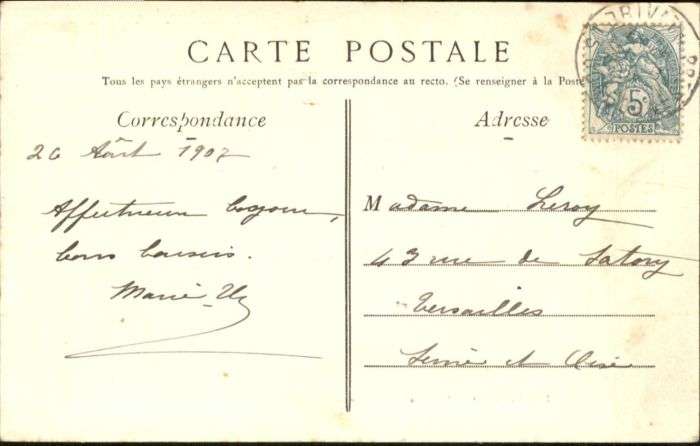 CARTE POSTALE
Tous les pays étrangers n'acceptent pas la correspondance au recto. (Se renseigner à la Poste
Correspondance
26 Août 1907
Affectueux bonjour,
bons baisers.
Marie
Adresse
5c
POSTES
Madame Leroy
43 rue de Satory
Versailles
Seine et Oise